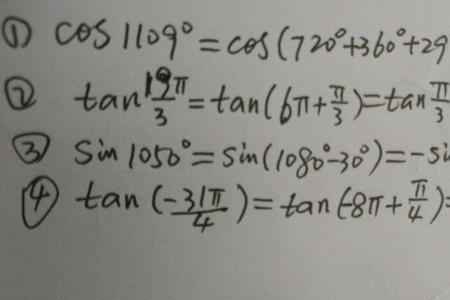 ① cos1109°=cos(720°+360°+29
② tan19π/3=tan(6π+π/3)=tanπ/3
③ sin1050°=sin(1080°-30°)=-si
④ tan(-31π/4)=tan(-8π+π/4)=